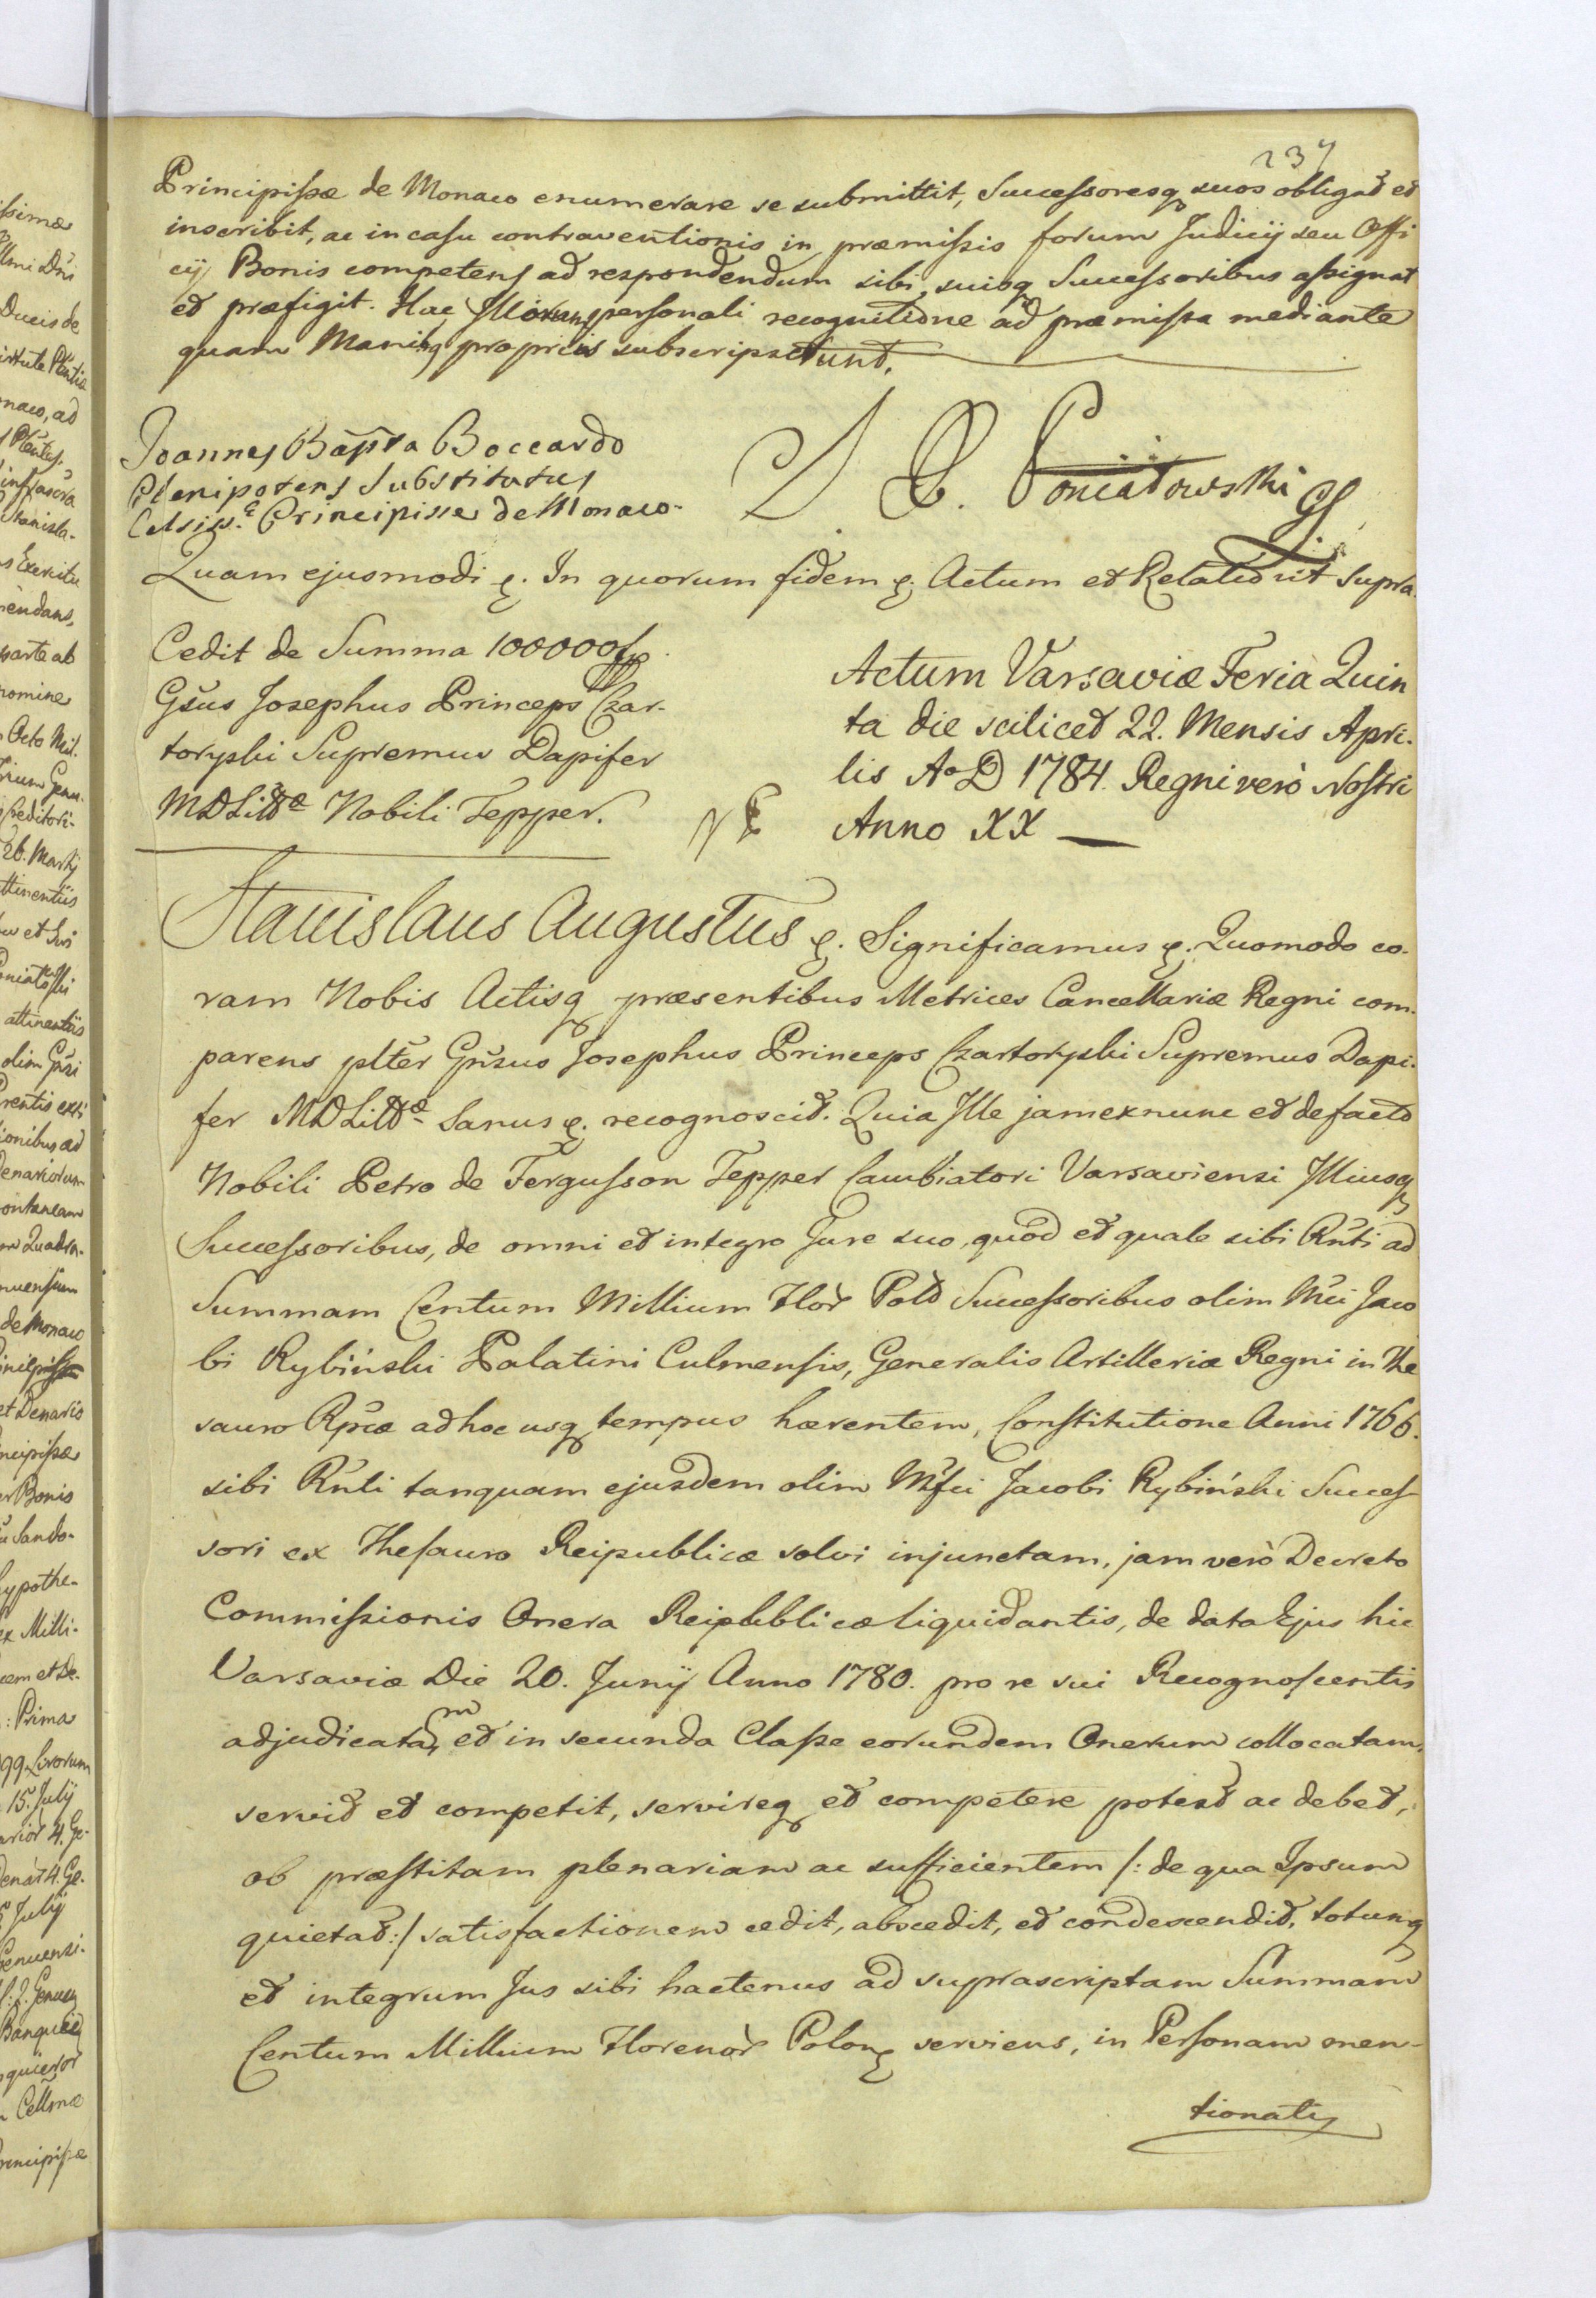 237
Principissæ de Monaco enumerare se submittit, Successoresq suos obligat et
inscribit, ac in casu contraventionis in præmissis forum Judicij seu Offi
cij Bonis competens ad respondendum sibi, suisq Successoribus assignat
et præfigit. Hac Illorum personali recognitione ad præmissa mediante
quam Manibq proprijs subscripserunt.
Joannes Bapta Boccardo
Plenipotens Substitutus
Celsiss.æ Principisse de Monaco.
Poniatowski
Quam ejusmodi ꝛ. In quorum fidem ꝛ. Actum et Relatio ut supra.
Cedit de Summa 100000 fp.
Gsus Josephus Princeps Czar-
toryski Supremus Dapifer
MDLittæ Nobili Tepper.
Actum Varsaviæ Feria Quin
ta die scilicet 22. Mensis Apri-
lis A.D 1784. Regni verò Nostri
Anno XX
Stanislaus Augustus ꝛ. Significamus ꝛ. Quomodo co-
ram Nobis Actisq præsentibus Metrices Cancellariæ Regni com-
parens plter Gnsus Josephus Princeps Czartoryski Supremus Dapi-
fer MDLittæ Sanus ꝛ. recognoscit. Quia Ille jam ex nunc et de facto
Nobili Petro de Fergusson Tepper Cambiatori Varsaviensi Illiusq
Successoribus, de omni et integro Jure suo, quod et quale sibi Rnti ad
Summam Centum Millium Flor Pol Successoribus olim Mci Jaco
bi Rybiński Palatini Culmensis, Generalis Artilleriæ Regni in The
sauro Rpcæ ad hoc usq tempus hærentem, Constitutione Anni 1766.
sibi Rnti tanquam ejusdem olim Mfci Jacobi Rybiński Succes-
sori ex Thesauro Reipublicæ solvi injunctam, jam verò Decreto
Commissionis Onera Reipublicæ liquidantis, de data Ejus hic
Varsaviæ Die 20. Junij Anno 1780. pro re sui Recognoscentis
adjudicatam et in secunda Classe eorundem Onerum collocatam,
servit et competit, servireq et competere potest ac debet,
ob præstitam plenariam ac sufficientem /: de qua Ipsum
quietat :/ satisfactionem cedit, abscedit, et condescendit, totumq
et integrum Jus sibi hactenus ad suprascriptam Summam
Centum Millium Florenor Polon serviens, in Personam men-
tionati